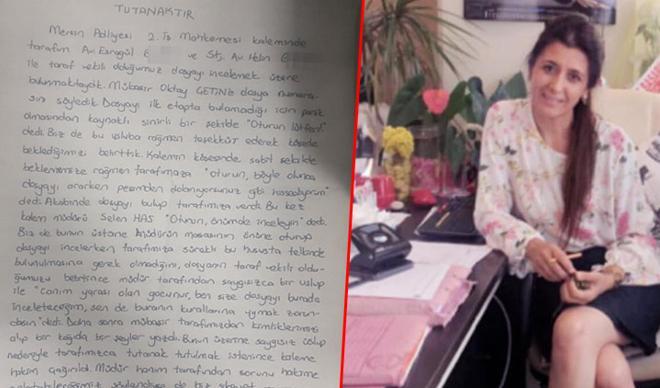 TUTANAKTIR
Mersin Adliyesi 2. İş Mahkemesi kaleminde
tarafım Av. Esragül E ve Stj. Av. Helin G
ile taraf vekili olduğumuz dosyayı incelemek üzere
bulunmaktaydık. Mübaşir Oktay ÇETİN'e dosya numara-
sını söyledik. Dosyayı ilk etapta bulamadığı için panik
olmasından kaynaklı sinirli bir şekilde "Oturun lütfen"
dedi. Biz de bu üsluba rağmen teşekkür ederek köşede
beklediğimizi belirttik. Kalemin köşesinde sabit şekilde
beklememize rağmen tarafımıza "oturun, böyle olunca
dosyayı ararken peşimden dolanıyorsunuz gibi hissediyorum"
dedi. Akabinde dosyayı bulup tarafımıza verdi. Bu kez
kalem müdürü Selen HAS "Oturun, önümde inceleyin" dedi.
Biz de bunun üstüne müdürün masasının önüne oturup
dosyayı incelerken tarafımıza sürekli bu hususta telkinde
bulunulmasına gerek olmadığını, dosyanın taraf vekili oldu-
ğumuzu belirtince müdür tarafından saygısızca bir üslup
ile "Canım yarası olan gocunur, ben size dosyayı burada
inceleteceğim, sen de buranın kurallarına uymak zorun-
dasın" dedi. Daha sonra mübaşir tarafımızdan kimliklerimizi
alıp bir kağıda bir şeyler yazdı. Bunun üzerine saygısız üslup
nedeniyle tarafımızca tutanak tutulmak istenince kaleme
hakim çağırıldı. Müdür hanım tarafından sorunu hakime